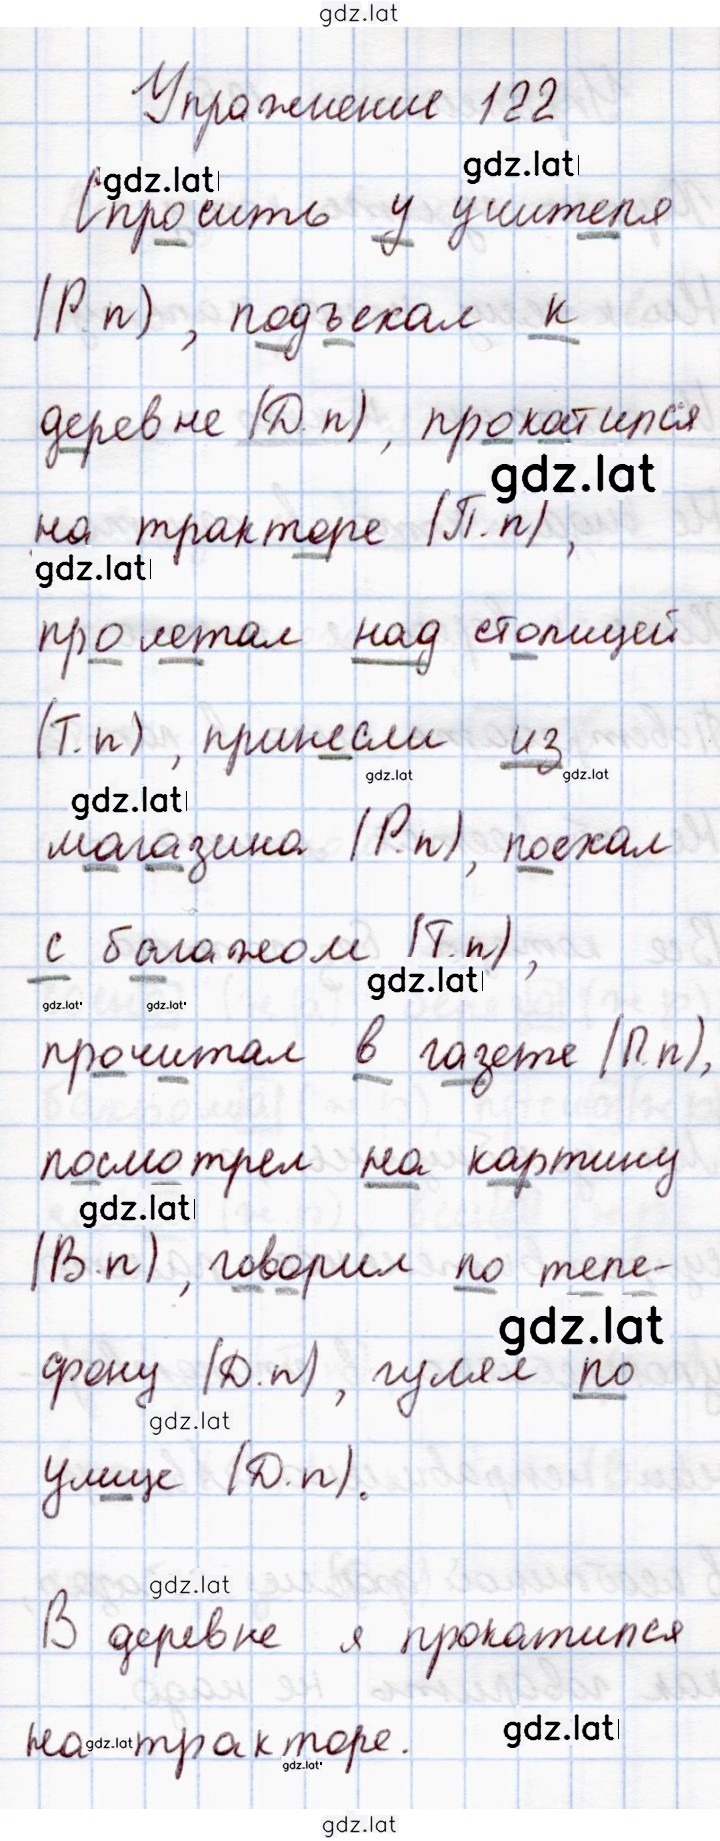 gdz.lat
Упражнение 122
gdz.lat gdz.lat
Спросить у учителя
(Р.п), подъехал к
деревне (Д.п), прокатился
gdz.lat
на тракторе (П.п),
gdz.lat
пролетал над столицей
(Т.п), принесли из
gdz.lat gdz.lat gdz.lat
магазина (Р.п), поехал
с багажом (Т.п),
gdz.lat gdz.lat gdz.lat
прочитал в газете (П.п),
посмотрел на картину
gdz.lat
(В.п), говорил по теле-
gdz.lat
фону (Д.п), гулял по
gdz.lat
улице (Д.п).
gdz.lat
В деревне я прокатился
на тракторе.
gdz.lat gdz.lat gdz.lat
gdz.lat